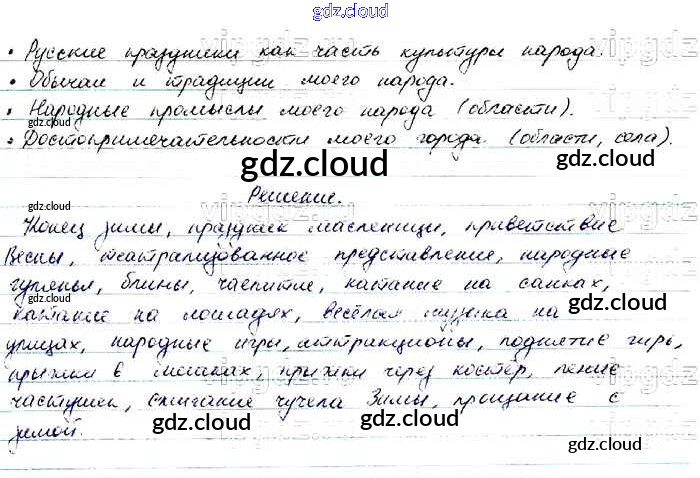 gdz.cloud
• Русские праздники как часть культуры народа.
• Обычаи и традиции моего народа.
• Народные промыслы моего народа (области).
• Достопримечательности моего города. (области, села).
gdz.cloud
Решение.
Конец зимы, праздник масленицы, приветствие
Весны, театрализованное представление, народные
гулянья, блины, чаепитие, катание на санках,
катание на лошадях, весёлая музыка на
улицах, народные игры, аттракционы, поднятие гирь,
прыжки в мешках, прыжки через костёр, пение
частушек, сжигание чучела Зимы, прощание с
зимой.
gdz.cloud